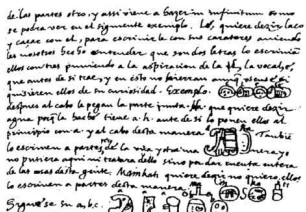 de las partes otro, y assi viene a hazer in infinitum como
se podra ver en el siguiente exemplo. Lé, quiere dezir laço
y caçar con el, para escrivirle con sus carateres aviendo
les nosotros hecho entender que son dos letras lo escrivian
ellos con tres puniendo a la aspiracion de la l, la vocal é,
que antes de si trae, y en esto no hierran aunque
quisieren ellos de su curiosidad. Exemplo.
despues al cabo le pegan la parte junta. Ha que quiere dezir
agua porque la hache tiene a. h. ante de si lo ponen ellos al
principio con a. y al cabo desta manera Tambien
lo escriven a partes de la una y otra manera, yo
no pusiera aqui ni tratara dello sino por dar cuenta entera
de las cosas desta gente. Mamkati quiere dezir no quiero, ellos
lo escriven a partes desta manera
Siguese su a, b, c.